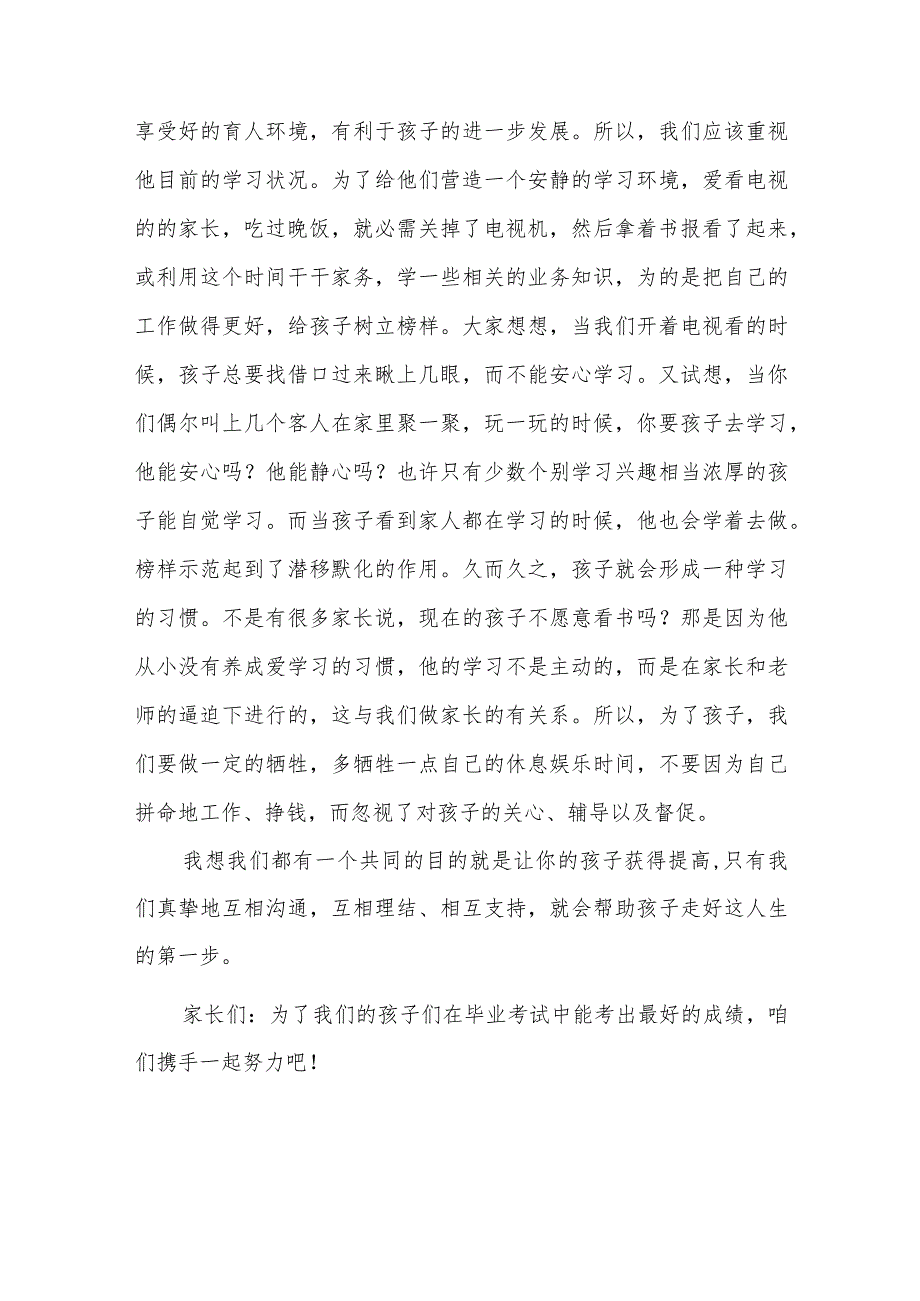 享受好的育人环境，有利于孩子的进一步发展。所以，我们应该重视
他目前的学习状况。为了给他们营造一个安静的学习环境，爱看电视
的的家长，吃过晚饭，就必需关掉了电视机，然后拿着书报看了起来，
或利用这个时间干干家务，学一些相关的业务知识，为的是把自己的
工作做得更好，给孩子树立榜样。大家想想，当我们开着电视看的时
候，孩子总要找借口过来瞅上几眼，而不能安心学习。又试想，当你
们偶尔叫上几个客人在家里聚一聚，玩一玩的时候，你要孩子去学习，
他能安心吗？他能静心吗？也许只有少数个别学习兴趣相当浓厚的孩
子能自觉学习。而当孩子看到家人都在学习的时候，他也会学着去做。
榜样示范起到了潜移默化的作用。久而久之，孩子就会形成一种学习
的习惯。不是有很多家长说，现在的孩子不愿意看书吗？那是因为他
从小没有养成爱学习的习惯，他的学习不是主动的，而是在家长和老
师的逼迫下进行的，这与我们做家长的有关系。所以，为了孩子，我
们要做一定的牺牲，多牺牲一点自己的休息娱乐时间，不要因为自己
拼命地工作、挣钱，而忽视了对孩子的关心、辅导以及督促。
我想我们都有一个共同的目的就是让你的孩子获得提高,只有我
们真挚地互相沟通，互相理结、相互支持，就会帮助孩子走好这人生
的第一步。
家长们：为了我们的孩子们在毕业考试中能考出最好的成绩，咱
们携手一起努力吧！